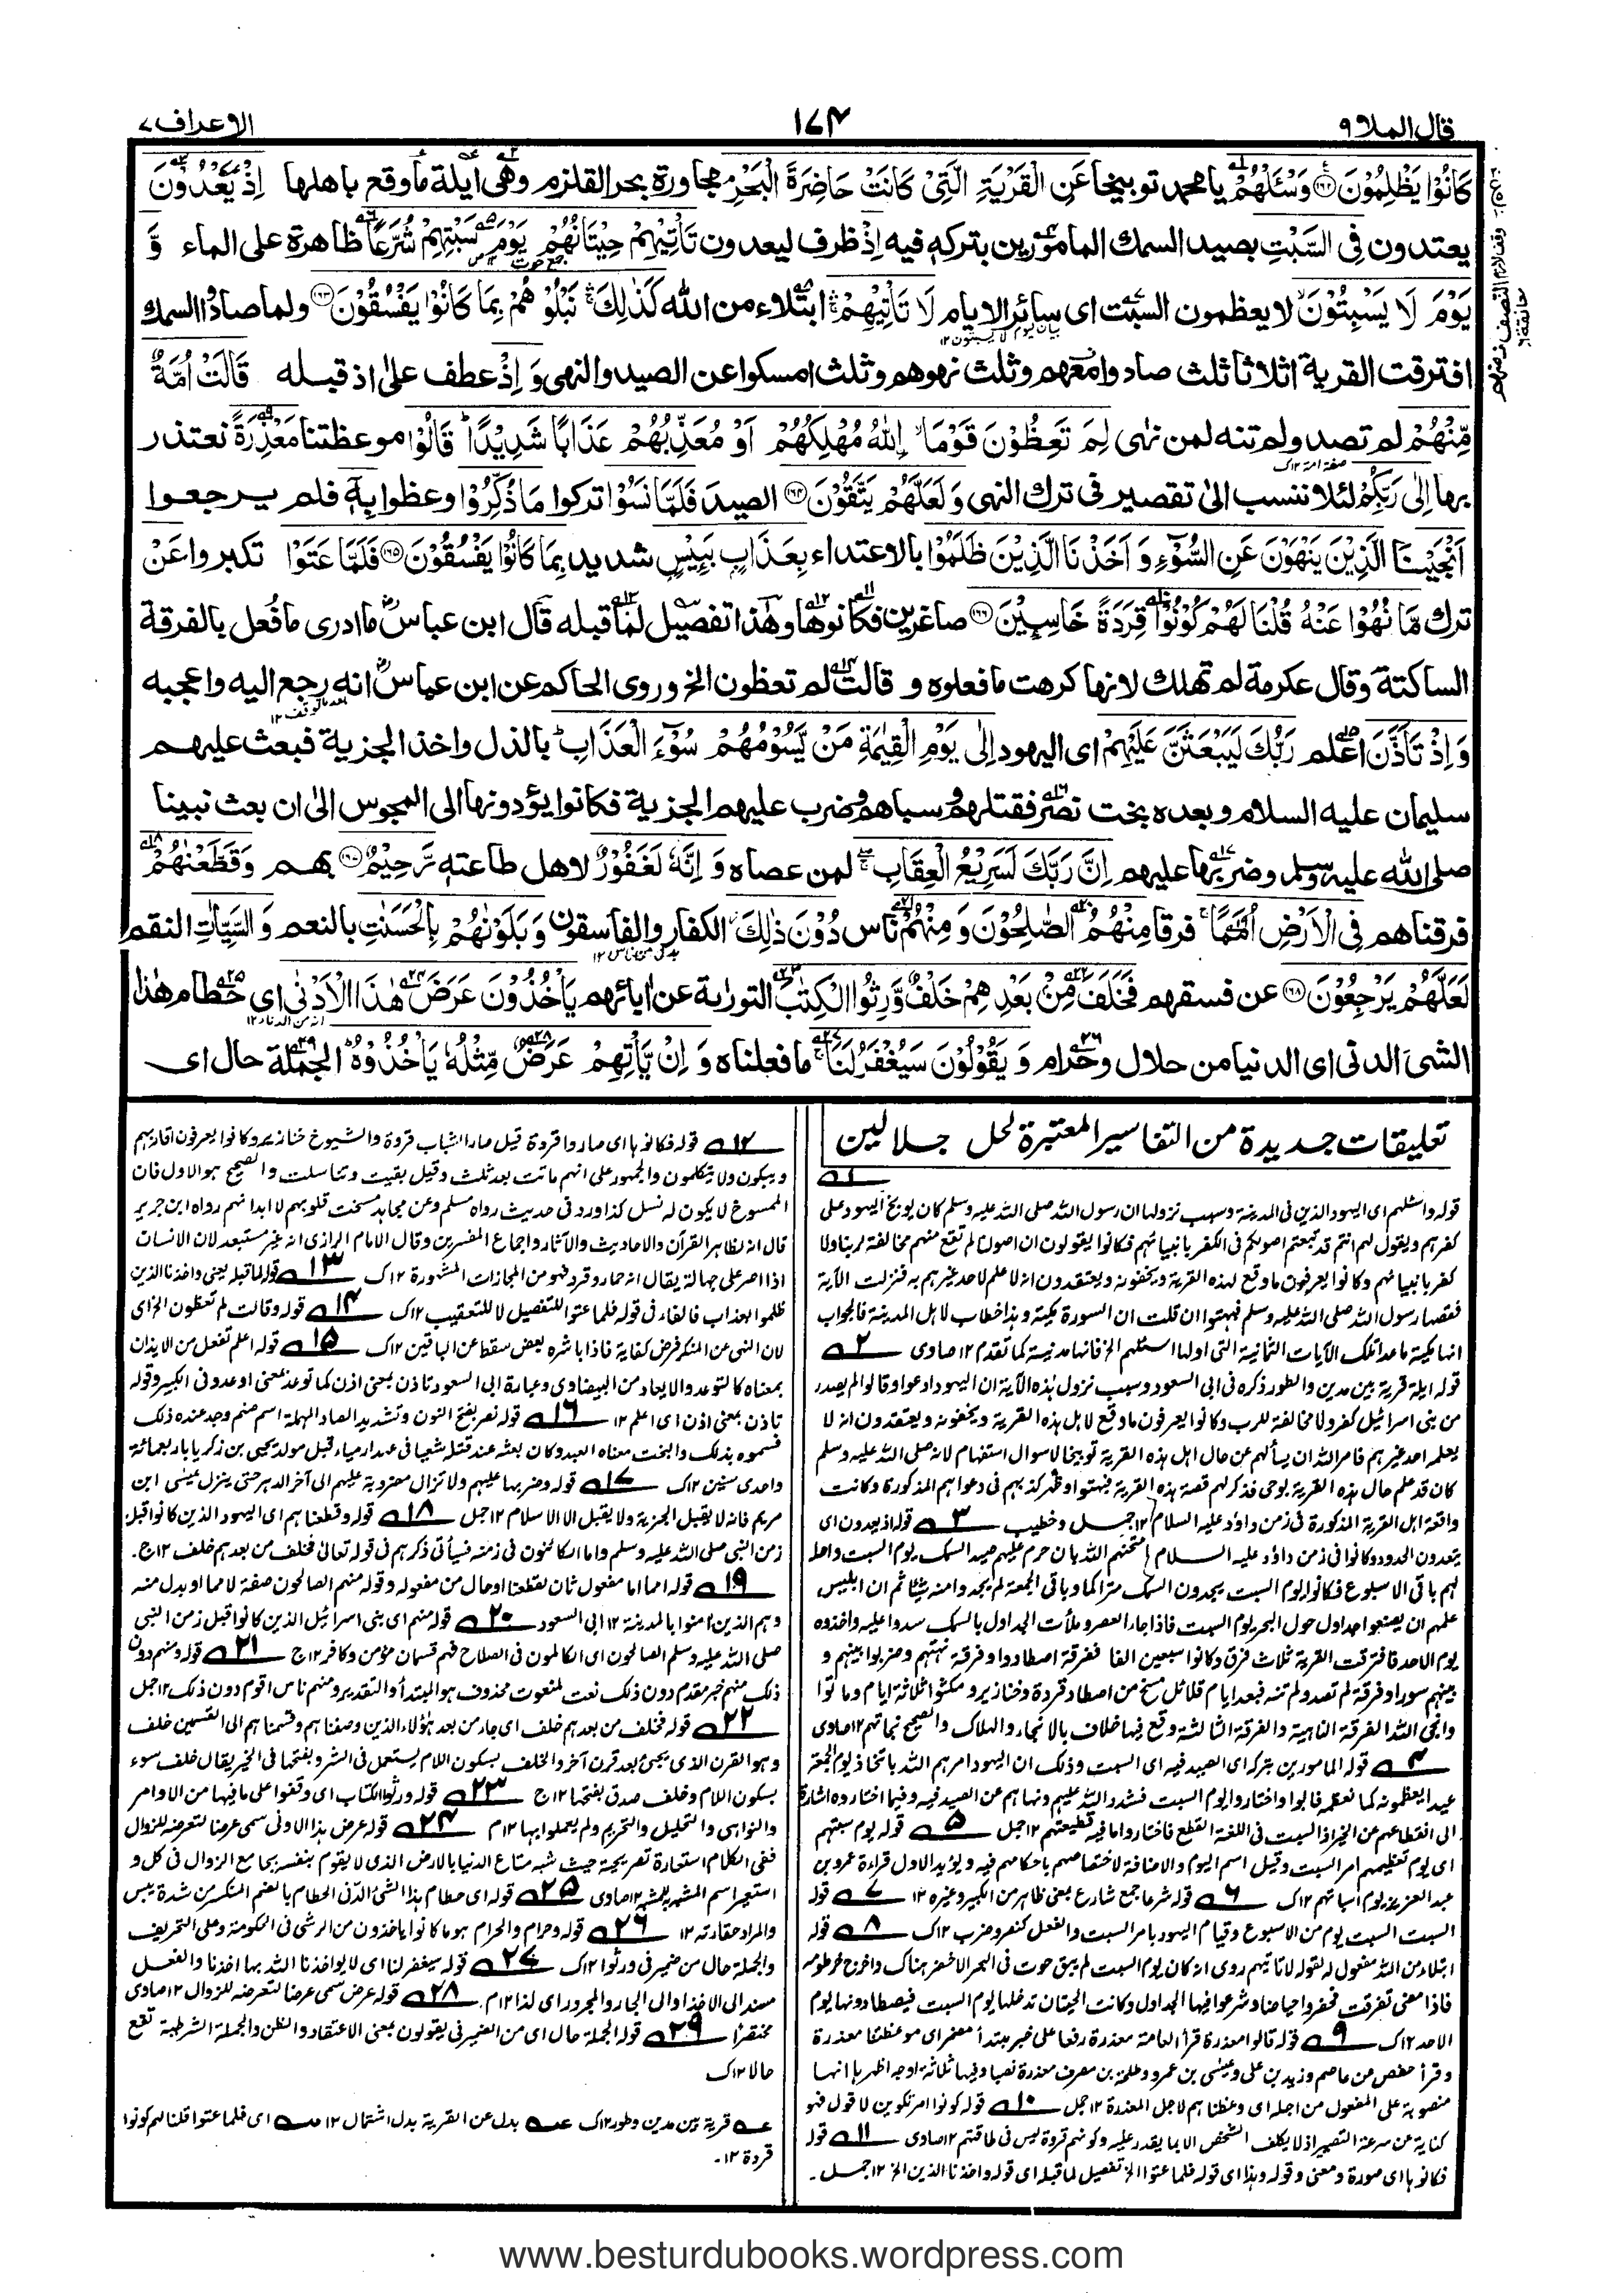 قال الملا ٩
١٧٤
الاعراف ٧
كَانُوْا يَظْلِمُوْنَ وَسْئَلْهُمْ يا محمد توبيخا عَنِ الْقَرْيَةِ الَّتِیْ كَانَتْ حَاضِرَةَ الْبَحْرِ مجاورة بحر القلزم وهی ايلة ما وقع باهلها اِذْ يَعْدُوْنَ
يعتدون فِی السَّبْتِ بصيد السمك المامورين بتركه فيه اِذْ ظرف ليعدون تَاْتِيْهِمْ حِيْتَانُهُمْ يَوْمَ سَبْتِهِمْ شُرَّعًا ظاهرة على الماء وَّ
يَوْمَ لَا يَسْبِتُوْنَ لا يعظمون السبت ای سائر الايام لَا تَاْتِيْهِمْ ابتلاء من الله كَذٰلِكَ نَبْلُوْهُمْ بِمَا كَانُوْا يَفْسُقُوْنَ ولما صادوا السمك
افترقت القرية اثلاثا ثلث صادوا معهم وثلث نهوهم وثلث امسكوا عن الصيد والنهی وَ اِذْ عطف علیٰ اذ قبله قَالَتْ اُمَّةٌ
مِّنْهُمْ لم تصد ولم تنه لمن نهی لِمَ تَعِظُوْنَ قَوْمَا اللهُ مُهْلِكُهُمْ اَوْ مُعَذِّبُهُمْ عَذَابًا شَدِيْدًا قَالُوْا موعظتنا مَعْذِرَةً نعتذر
بها اِلٰی رَبِّكُمْ لئلا ننسب الیٰ تقصير فی ترك النهی وَ لَعَلَّهُمْ يَتَّقُوْنَ الصيد فَلَمَّا نَسُوْا تركوا مَا ذُكِّرُوْا وعظوا بِهٖ فلم يرجعوا
اَنْجَيْنَا الَّذِيْنَ يَنْهَوْنَ عَنِ السُّوْٓءِ وَ اَخَذْنَا الَّذِيْنَ ظَلَمُوْا بالاعتداء بِعَذَابٍ بَئِيْسٍ شديد بِمَا كَانُوْا يَفْسُقُوْنَ فَلَمَّا عَتَوْا تكبروا عَنْ
ترك مَّا نُهُوْا عَنْهُ قُلْنَا لَهُمْ كُوْنُوْا قِرَدَةً خَاسِئِيْنَ صاغرين فكانوها وهٰذا تفصيل لما قبله قال ابن عباس ما ادری ما فُعل بالفرقة
الساكتة وقال عكرمة لم تهلك لانها كرهت ما فعلوه و قالت لم تعظون الخ وروی الحاكم عن ابن عباس انه رجع اليه واعجبه
وَ اِذْ تَاَذَّنَ اعلم رَبُّكَ لَيَبْعَثَنَّ عَلَيْهِمْ ای اليهود اِلٰی يَوْمِ الْقِيٰمَةِ مَنْ يَّسُوْمُهُمْ سُوْٓءَ الْعَذَابِ بالذل واخذ الجزية فبعث عليهم
سليمان عليه السلام وبعده بخت نصر فقتلهم وسباهم وضرب عليهم الجزية فكانوا يؤدونها الی المجوس الیٰ ان بعث نبينا
صلى الله عليه وسلم وضربها عليهم اِنَّ رَبَّكَ لَسَرِيْعُ الْعِقَابِ لمن عصاه وَ اِنَّهٗ لَغَفُوْرٌ لاهل طاعته رَّحِيْمٌ بهم وَقَطَّعْنٰهُمْ
فرقناهم فِی الْاَرْضِ اُمَمًا فرقا مِنْهُمُ الصّٰلِحُوْنَ وَ مِنْهُمْ ناس دُوْنَ ذٰلِكَ الكفار والفاسقون وَ بَلَوْنٰهُمْ بِالْحَسَنٰتِ بالنعم وَ السَّيِّاٰتِ النقم
لَعَلَّهُمْ يَرْجِعُوْنَ عن فسقهم فَخَلَفَ مِنْۢ بَعْدِهِمْ خَلْفٌ وَّرِثُوا الْكِتٰبَ التورٰىة عن اٰبائهم يَاْخُذُوْنَ عَرَضَ هٰذَا الْاَدْنٰی ای حطام هٰذا
الشیء الدنی ای الدنيا من حلال وحرام وَ يَقُوْلُوْنَ سَيُغْفَرُ لَنَا ما فعلناه وَ اِنْ يَّاْتِهِمْ عَرَضٌ مِّثْلُهٗ يَاْخُذُوْهُ الجملة حال ای
تعليقات جديدة من التفاسير المعتبرة لحل جلالين
قوله واسئلهم ای اليهود الذين فی المدينة وسبب نزولها ان رسول الله صلی الله عليه وسلم كان يوبخ اليهود علی
كفرهم ويقول لهم انتم قد تبعتم اصولكم فی الكفر بانبيائهم فكانوا يقولون ان اصولنا لم تقع منهم مخالفة لربنا ولا
كفر بانبيائهم وكانوا يعرفون ما وقع لهذه القرية ويخفونه ويعتقدون انه لا علم لاحد غيرهم به فنزلت الآية
فقصها رسول الله صلی الله عليه وسلم فبهتوا ان قلت ان السورة مكية وهذا خطاب لاهل المدينة فالجواب
انها مكية ما عدا تلك الآيات الثمانية التی اولها اسئلهم الخ فانها مدنية كما تقدم ١٢ صاوی ٢
قوله ايلة قرية بين مدين والطور ذكره فی ابی السعود وسبب نزول هذه الآية ان اليهود ادعوا وقالوا لم يصدر
من بنی اسرائيل كفر ولا مخالفة للرب وكانوا يعرفون ما وقع لاهل هذه القرية ويخفونه ويعتقدون انه لا
يعلمه احد غيرهم فامر الله ان يسألهم عن حال اهل هذه القرية توبيخا لا سوال استفهام لانه صلی الله عليه وسلم
كان قد علم حال هذه القرية بوحی فذكر لهم قصة هذه القرية فبهتوا وظهر كذبهم فی دعواهم المذكورة وكانت
واقعة اهل القرية المذكورة فی زمن داؤد عليه السلام ١٢ جمل وخطيب ٣ قوله اذ يعدون ای
يتعدون الحدود وكانوا فی زمن داؤد عليه السلام امتحنهم الله بان حرم عليهم صيد السمك يوم السبت واحل
لهم باقی الاسبوع فكانوا يوم السبت يجدون السمك متراكما وباقی الجمعة لم يجدوا منه شيئا ثم ان ابليس
علمهم ان يصنعوا جداول حول البحر يوم السبت فاذا جاء العصر وملأت الجداول بالسمك سدوا عليه واخذوه
يوم الاحد فافترقت القرية ثلاث فرق وكانوا سبعين الفا ففرقة اصطادوا وفرقة نهتهم وضربوا بينهم و
بينهم سورا وفرقة لم تصد ولم تنه فبعد ايام قلائل مسخ من اصطاد قردة وخنازير ومكثوا ثلاثة ايام وماتوا
وانجی الله الفرقة الناهية والفرقة الثالثة وقع فيها خلاف بالانجاء والهلاك والصحيح نجاتهم ١٢ صاوی
٤ قوله المامورين بتركه ای الصيد فيه ای السبت وذلك ان اليهود امرهم الله باتخاذ يوم الجمعة
عيدا يعظمونه كما نعظمه فابوا واختاروا يوم السبت فشدد الله عليهم ونهاهم عن الصيد فيه وفيما اختاروه اشارة
الی انقطاعهم عن الخير اذ السبت فی اللغة القطع فاختاروا ما فيه قطيعتهم ١٢ جمل ٥ قوله يوم سبتهم
ای يوم تعظيمهم امر السبت وقيل اسم اليوم والاضافة لاختصاصهم باحكامهم فيه ويؤيد الاول قراءة عمر بن
عبد العزيز يوم اسباتهم ١٢ك ٦ قوله شرعا جمع شارع بمعنی ظاهر من الكبير وغيره ١٢ ٧ قوله
السبت السبت يوم من الاسبوع وقيام اليهود بامر السبت والفعل كنصر وضرب ١٢ك ٨ قوله
ابتلاء من الله مفعول له لقوله لا تاتيهم روی انه كان يوم السبت لم يبق حوت فی البحر الا حضر هناك واخرج خرطومه
فاذا مضی تفرقت فحفروا حياضا وشرعوا فيها الجداول وكانت الحيتان تدخلها يوم السبت فيصطادونها يوم
الاحد ١٢ك ٩ قوله قالوا معذرة قرأ العامة معذرة رفعا علی خبر مبتدأ مضمر ای موعظتنا معذرة
وقرأ حفص عن عاصم وزيد بن علی وعيسی بن عمرو وطلحة بن مصرف معذرة نصبا وفيها ثلاثة اوجه اظهرها انها
منصوبة علی المفعول من اجله ای وعظناهم لاجل المعذرة ١٢ جمل ١٠ قوله كونوا امر تكوين لا قول فهو
كناية عن سرعة التصيير اذ لا يكلف الشخص الا بما يقدر عليه وكونهم قردة ليس فی طاقتهم ١٢ صاوی ١١ قوله
فكانوها ای صورة ومعنی وقوله وهذا ای قوله فلما عتوا الخ تفصيل لما قبله ای قوله واخذنا الذين الخ ١٢ جمل۔
١٢ قوله فكانوها ای صاروا قردة قيل صار الشباب قردة والشيوخ خنازير وكانوا يعرفون اقاربهم
ويبكون ولا يتكلمون والجمهور علی انهم ماتت بعد ثلث وقيل بقيت وتناسلت والصحيح هو الاول فان
الممسوخ لا يكون له نسل كذا ورد فی حديث رواه مسلم وعن مجاهد مسخت قلوبهم لا ابدانهم رواه ابن جرير
قال انه لظاهر القرآن والاحاديث والآثار واجماع المفسرين وقال الامام الرازی انه غير مستبعد لان الانسان
اذا اصر علی جهالة يقال انه حمار وقرد فهو من المجازات المشهورة ١٢ك ١٣ قوله لما قبله يعنی واخذنا الذين
ظلموا بعذاب فالفاء فی قوله فلما عتوا للتفصيل لا للتعقيب ١٢ك ١٤ قوله وقالت لم تعظون الخ ای
لان النهی عن المنكر فرض كفاية فاذا باشره بعض سقط عن الباقين ١٢ك ١٥ قوله اعلم تفعل من الايذان
بمعناه كالتوعد والايعاد من البيضاوی وعبارة ابی السعود تاذن بمعنی اذن كما توعد بمعنی اوعد وفی الكبير وقوله
تاذن بمعنی اذن ای اعلم ١٢ ١٦ قوله نصر بفتح النون وتشديد الصاد المهملة اسم صنم وجد عنده ذلك
فسموه بذلك والبخت معناه العبد وكان بعثه عند قتله شعيا فی عهد ارمياء قبل مولد يحيی بن زكريا باربعمائة
واحدی سنين ١٢ك ١٧ قوله وضربها عليهم ولا تزال مضروبة عليهم الی آخر الدهر حتی ينزل عيسی ابن
مريم فانه لا يقبل الجزية ولا يقبل الا الاسلام ١٢ جمل ١٨ قوله وقطعناهم ای اليهود الذين كانوا قبل
زمن النبی صلی الله عليه وسلم واما الكائنون فی زمنه فسيأتی ذكرهم فی قوله تعالیٰ فخلف من بعدهم خلف ١٢ ج۔
١٩ قوله امما اما مفعول ثان لقطعنا او حال من مفعوله وقوله منهم الصالحون صفة لامما او بدل منه
وهم الذين اٰمنوا بالمدينة ١٢ ابی السعود ٢٠ قوله منهم ای بنی اسرائيل الذين كانوا قبل زمن النبی
صلی الله عليه وسلم الصالحون ای الكاملون فی الصلاح فهم قسمان مؤمن وكافر ١٢ ج ٢١ قوله ومنهم دون
ذلك منهم خبر مقدم دون ذلك نعت لمنعوت محذوف هو المبتدأ والتقدير ومنهم ناس او قوم دون ذلك ١٢ جمل
٢٢ قوله فخلف من بعدهم خلف ای جاء من بعد هؤلاء الذين وصفناهم وقسمناهم الی القسمين خلف
وهو القرن الذی يجیء بعد قرن آخر والخلف بسكون اللام يستعمل فی الشر وبفتحها فی الخير يقال خلف سوء
بسكون اللام وخلف صدق بفتحها ١٢ ج ٢٣ قوله ورثوا الكتاب ای وقفوا علی ما فيها من الاوامر
والنواهی والتحليل والتحريم ولم يعملوا بها ١٢م ٢٤ قوله عرض هذا الادنی سمی عرضا لتعرضه للزوال
ففی الكلام استعارة تصريحية حيث شبه متاع الدنيا بالعرض الذی لا يقوم بنفسه بجامع الزوال فی كل و
استعير اسم المشبه به للمشبه ١٢ صاوی ٢٥ قوله ای حطام هذا الشیء الدنی الحطام بالضم المنكسر من شدة يبس
والمراد حقارته ١٢ ٢٦ قوله وحرام والحرام هو ما كانوا ياخذون من الرشی فی الحكومة وعلی التحريف
والجملة حال من ضمير فی ورثوا ١٢ك ٢٧ قوله سيغفر لنا ای لا يؤاخذنا الله بما اخذنا والفعل
مسند الی الاخذ او الی الجار والمجرور ای لنا ١٢م ٢٨ قوله عرض سمی عرضا لتعرضه للزوال ١٢ صاوی
مختصرا ٢٩ قوله الجملة حال ای من الضمير فی يقولون بمعنی الاعتقاد والظن والجملة الشرطية تقع
حالا ١٢ك
عه قرية بين مدين وطور ١٢ك عه بدل عن القرية بدل اشتمال ١٢ سه ای فلما عتوا قلنا لهم كونوا
قردة ١٢۔
www.besturdubooks.wordpress.com